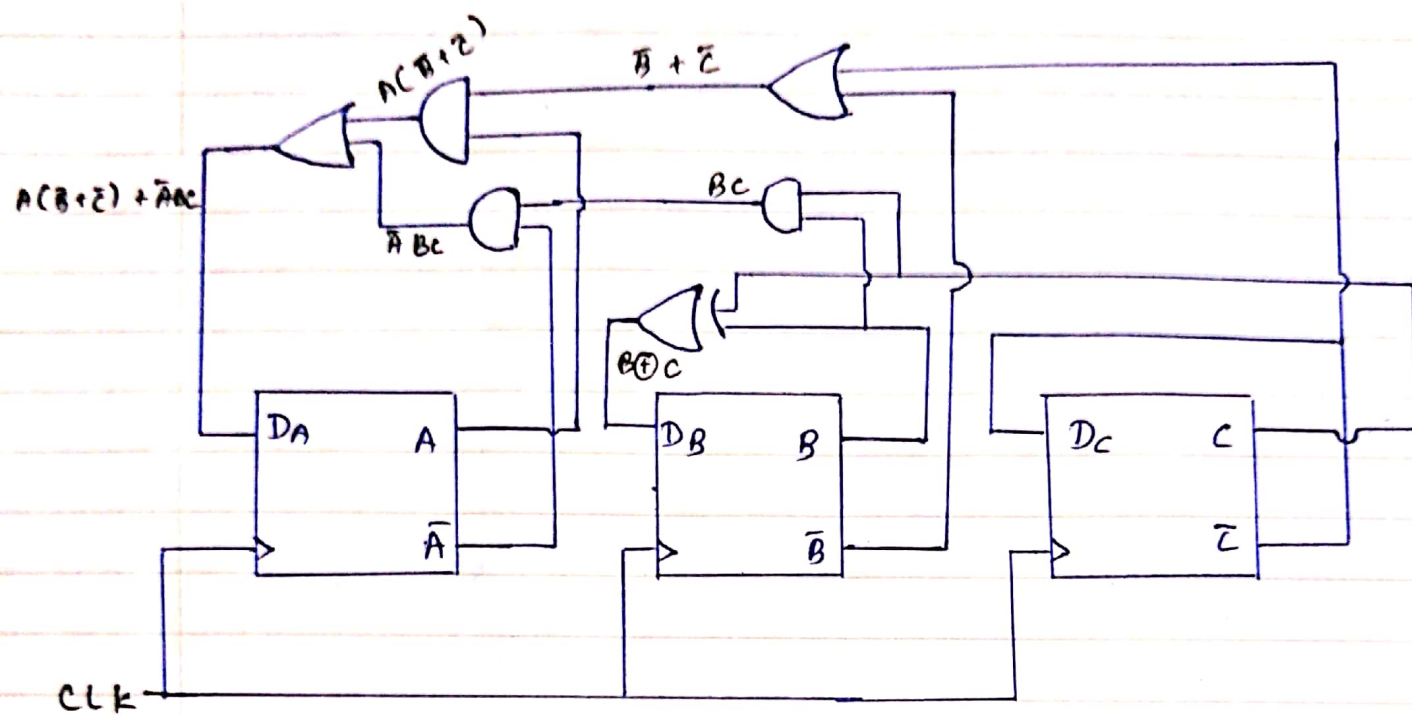 A(B̅+C̅)
B̅ + C̅
A(B̅+C̅) + A̅BC
BC
A̅ BC
B⊕C
DA
A
DB
B
DC
C
A̅
B̅
C̅
CLK